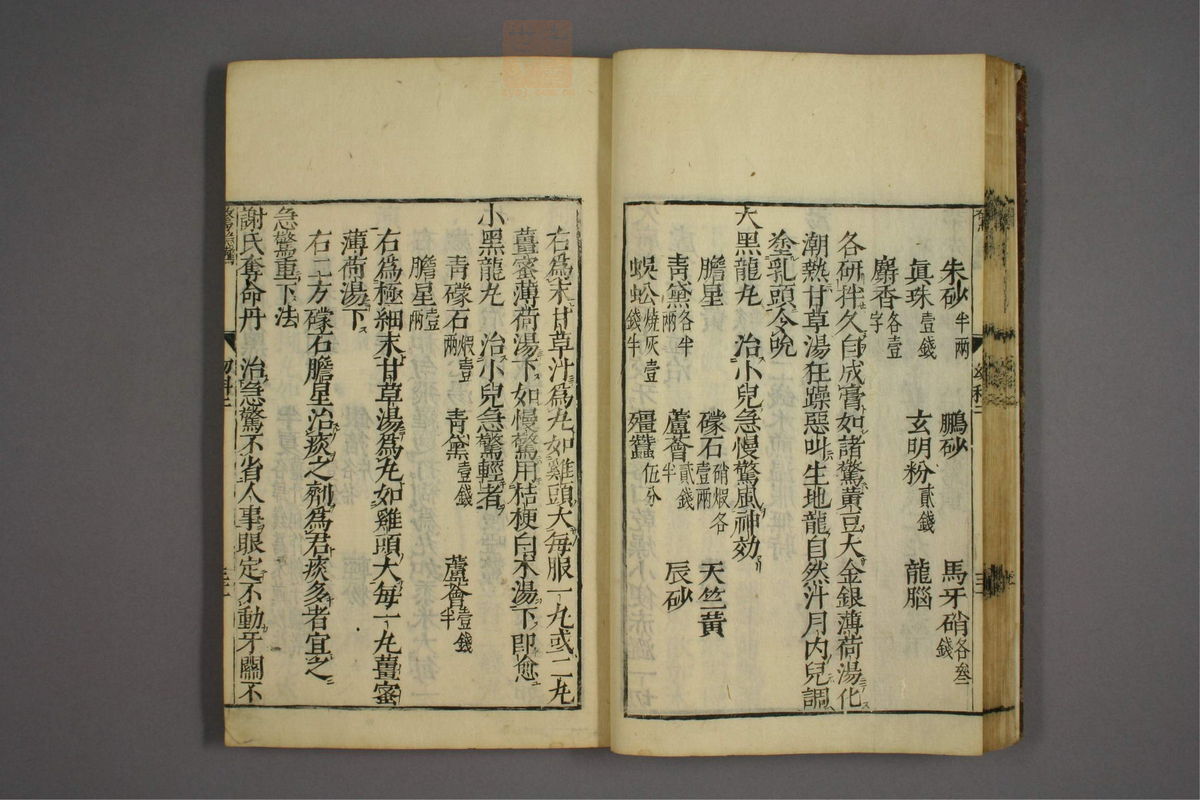 朱砂半兩 鵬砂 馬牙硝各叁錢
眞珠壹錢 玄明粉貳錢 龍腦
麝香各壹字
各研拌久自成膏如諸驚黄豆大金銀薄荷湯化
潮熱甘草湯狂躁惡叫生地龍自然汁月内兒調
塗乳頭令吮
大黑龍丸 治小兒急慢驚風神効
膽星 礞石硝煆各壹兩 天竺黄
青黛各半兩 蘆薈貳錢半 辰砂
蜈蚣燒灰壹錢半 殭蠶伍分
右爲末甘草汁爲丸如雞頭大每服一丸或二丸
薑蜜薄荷湯下如慢驚用桔梗白朮湯下即愈
小黑龍丸 治小兒急驚輕者
青礞石煆壹兩 青黛壹錢 蘆薈壹錢半
膽星壹兩
右爲極細末甘草湯爲丸如雞頭大每一丸薑蜜
薄荷湯下
右二方礞石膽星治痰之劑爲君痰多者宜之
急驚重下法
謝氏奪命丹 治急驚不省人事眼定不動牙關不